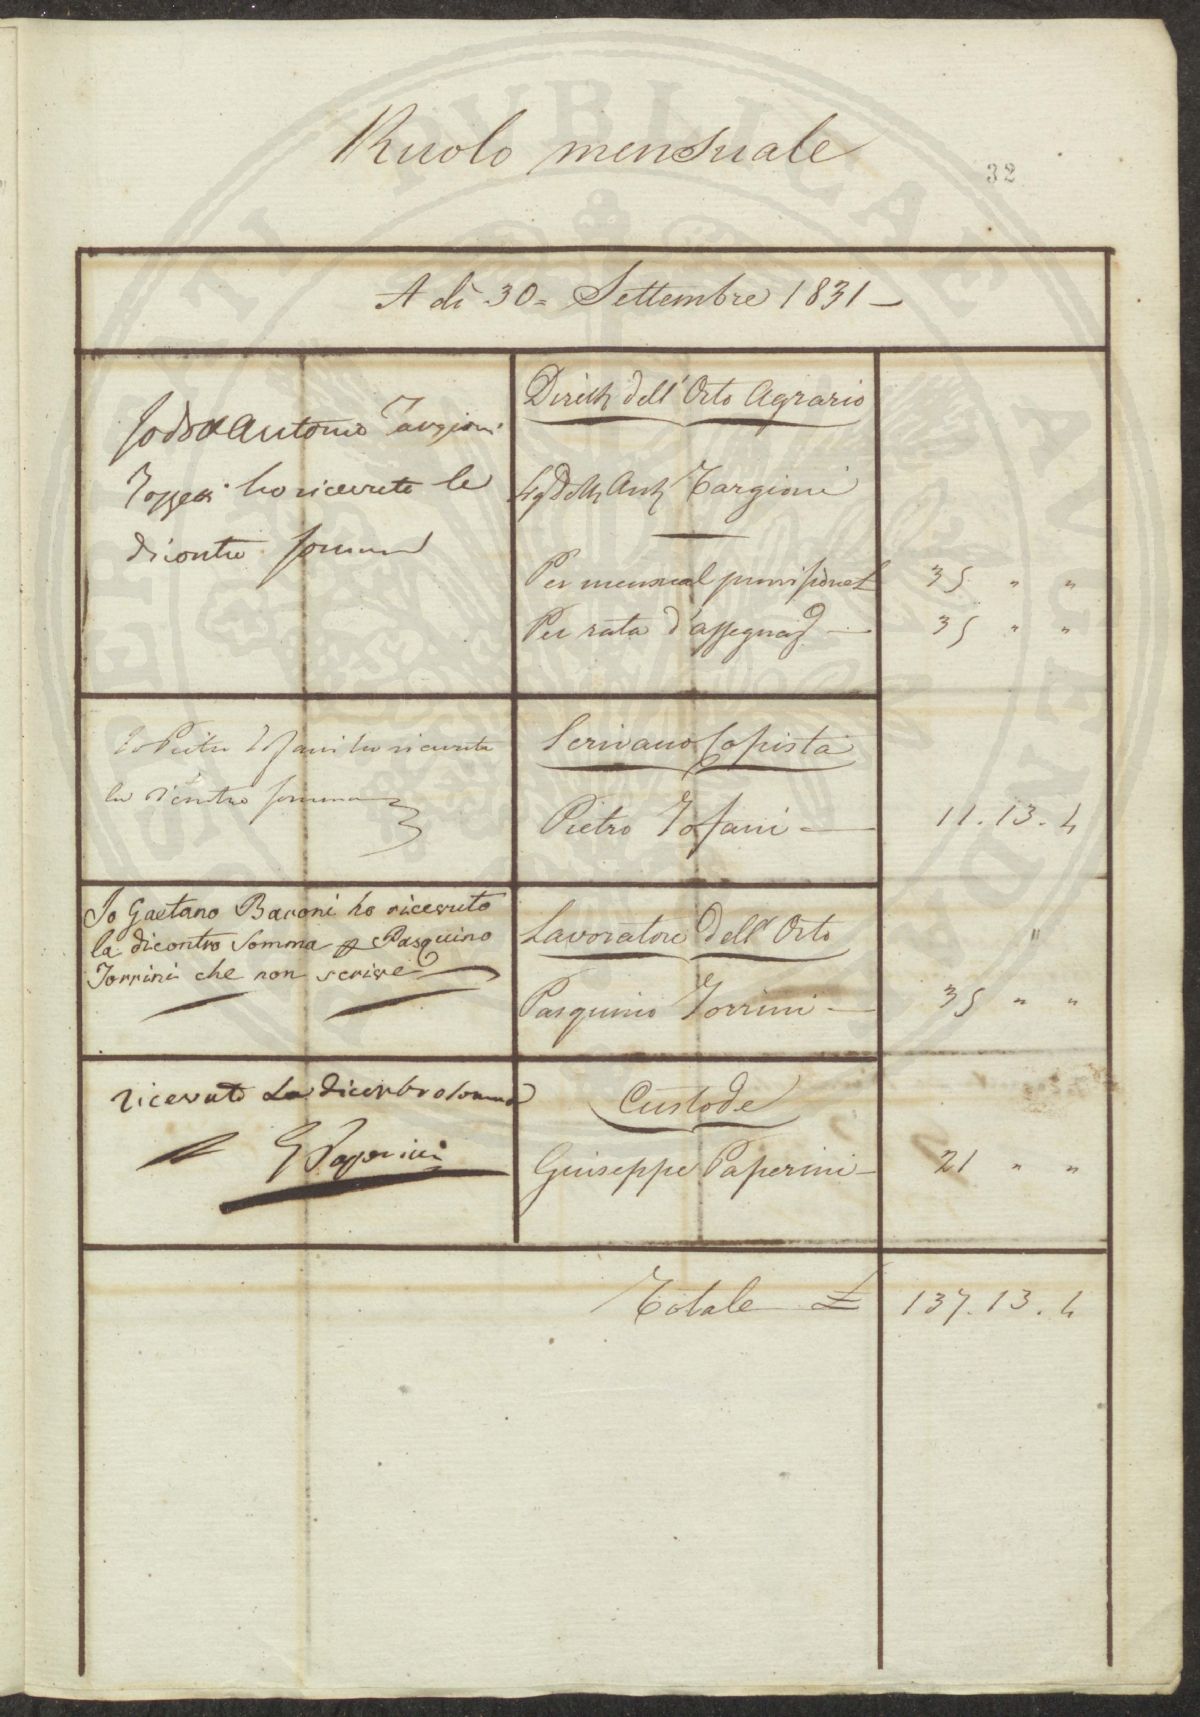 Ruolo mensuale
32
A dì 30= Settembre 1831 –
Io Dott Antonio Targioni
Tozzetti ho ricevuto la
dicontro somma
Dirett dell'Orto Agrario
Sig Dott Ant Targioni
Per mensual provvisione £ 35 " "
Per rata d'assegnaz — 35 " "
Io Pietro Tofani ho ricevuto
la dicontro somma
Scrivano Copista
Pietro Tofani — 11. 13. 4
Io Gaetano Baroni ho ricevuto
la dicontro Somma p Pasquino
Torrini che non scrive
Lavoratore dell'Orto "
Pasquino Torrini — 35 " "
ricevuto La dicontro somma
G Paperini
Custode
Giuseppe Paperini – 21 " "
Totale £ 137. 13. 4